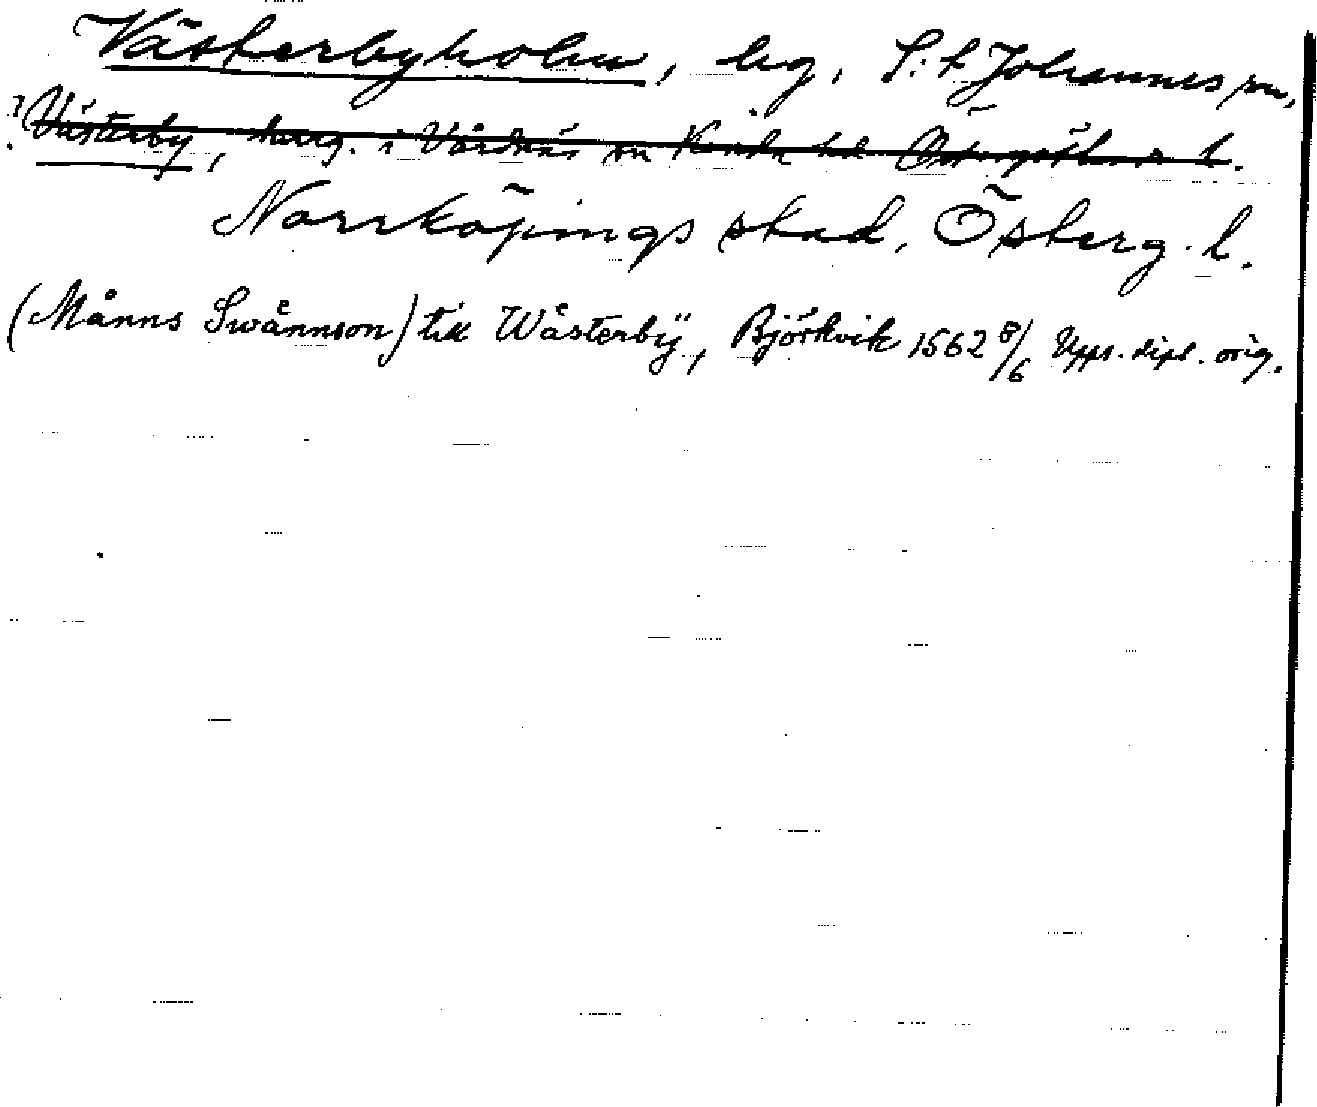 Västerbyholm, hg, S:t Johannes sn,
? Västerby, herrg. i Vårdnäs sn Kinda hd Östergötlands l.
Norrköpings stad, Österg. l.
(Månns Swånnson) till Wästerbÿ, Björkvik 1562 8/6 Upps. dipl. orig.